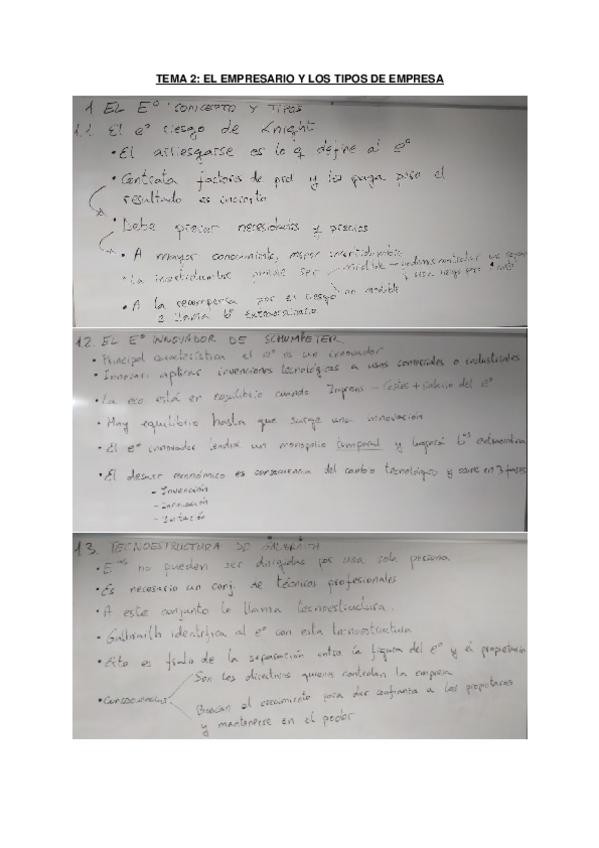 TEMA 2: EL EMPRESARIO Y LOS TIPOS DE EMPRESA
1 EL Eº: CONCEPTO Y TIPOS
1.1. El eº riesgo de Knight
• El arriesgarse es lo q define al eº
• Contrata factores de prd y los paga pero el
resultado es incierto
• Debe prever necesidades y precios
• A mayor conocimiento, menor incertidumbre
• La incertidumbre puede ser medible
no medible
• A la recompensa por el riesgo
llama bº extraordinario
1.2. EL Eº INNOVADOR DE SCHUMPETER
• Principal característica el eº es un innovador
• Innovar: aplicar invenciones tecnológicas a usos comerciales o industriales
• La eco está en equilibrio cuando Ingresos = Costes + salario del eº
• Hay equilibrio hasta que surge una innovación
• El eº innovador tendrá un monopolio temporal y logrará bºs
• El desarr económico es consecuencia del cambio tecnológico y ocurre en 3 fases
- Invención
- Innovación
- Imitación
1.3. TECNOESTRUCTURA DE GALBRAITH
• Eas no pueden ser dirigidas por una sola persona
• Es necesario un conj. de técnicos profesionales
• A este conjunto le llama tecnoestructura.
• Galbraith identifica al eº con esta tecnoestructura
• Esto es fruto de la separación entre la figura del eº y el propietario
• Consecuencias
Son los directivos quienes controlan la empresa
Buscan el crecimiento para dar confianza a los propietarios
y mantenerse en el poder